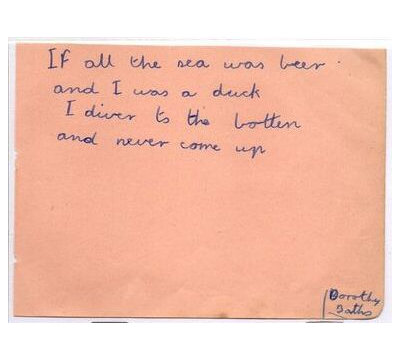 If all the sea was beer.
and I was a duck
I diver to the botten
and never come up
Dorothy